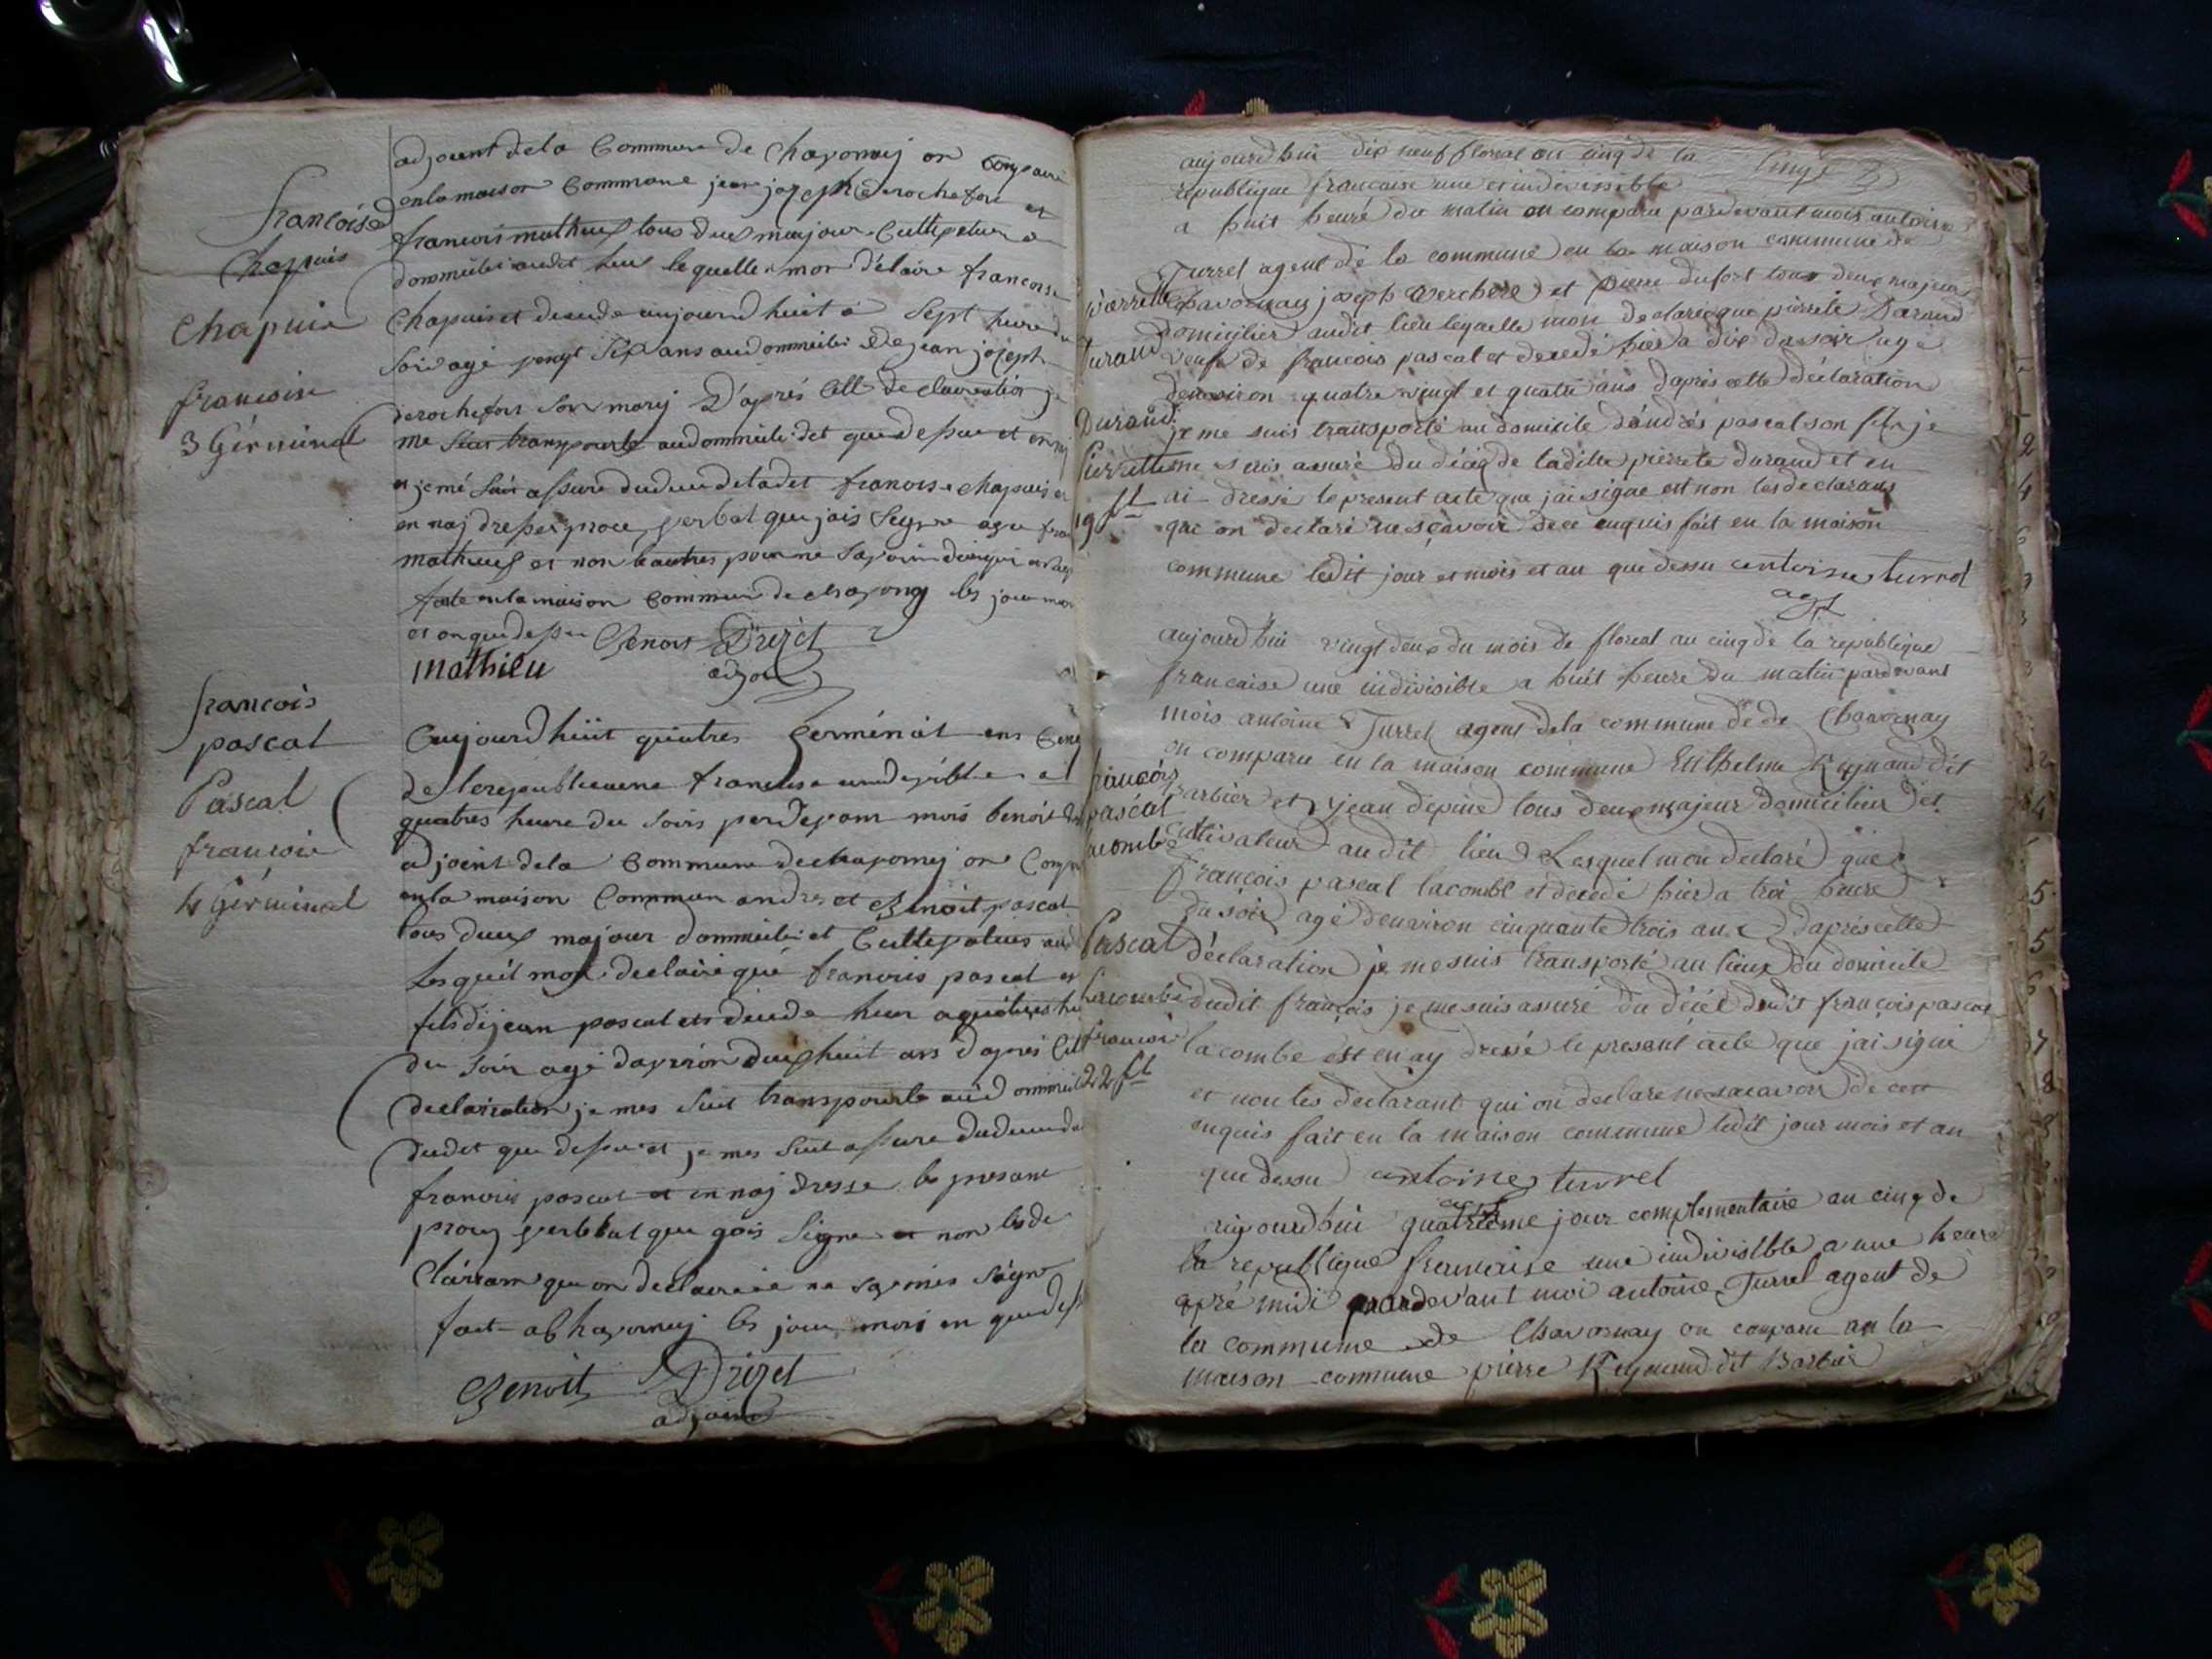 adjoient dela Commune de Chavornay on Comparu
enla maison Commune jean jozeph derochefore et
francois mathieuf tous deuf majour Cultipeture
dommicilie audit lieu le quelle mon délaire francoise
Chapuis et deisede aujourd huit a Sept heure du
Soir agé Sis ans au dommicile De jean jozeph
derochefore Son mary D'aprés Cette declaireation je
me Suit transpourte audommicile det que depue et
et je mé Suit assure dudeces deladet francoise Chapuis et
en naj dresse proces verbal que jais Segne
mathieuf et non le autres pour ne Savoir
fate en la maison Commune de les jour mois
et on que dessu Benoit Drizet
mathieu adjoi
francoise
Chapuis
Chapuis
francoise
3 Gérminal
Aujourd huit quatres Germinàl ens Cenq
de lerepublicueune francaise
quatres heure du Soirs perdepant mois benoit
adjoint dela Commune dechavornej on Comp
enla maison Commune andres et Benoit pascal
tous deuf majour dommicilie et Cultepateurs aud
Les queil mon declairé qué francois pascal
fils dijean pascal et deisede hier aquatres he
du Soir agé daviron deuf huit ans d'aprés Cet
declairation je mes Suit transpourte au dommicil
dudet que depu et je mes Suit assure dudeces du
francois pascal et en naj dresse le presant
proces verbbal que jais Signe et non les de
Clairant que on declairaie ne Savoir Signe
fait a Chavornay les jour mois en que dess
Benoit Drizet
adjoint
francois
pascal
Pascal
francois
4 Gérminal
aujourdhui dix neuf floreal an cinq de la
republique francaise une et indivissible
a huit heure du matin on comparu pardevant mois antoine
Turrel agent de la commune en la maison commune de
Chavornay joseph Verchere et pierre dufort tous deux majeur
domicilier audit lieu lequelle mon declaré que pierrete Durand
veuve de francois pascal et decedé hier a dix du soir agé
denviron quatre vingt et quatre ans daprès cette déclaration
je me suis transporté au domicile dándrés pascal son fils je
me suis assuré du décéq de ladille pierrete durand et en
ai dressé le present acte que jai signe et non les declarans
qui on declaré ne sçavoir de ce enquis fait en la maison
commune ledit jour et mois et an que dessu antoine turrel
agt
pierrette
Durand
Durand
Pierrette
19 fl
aujourdhui vingt deux du mois de floreal an cinq de la republique
francaise une indivisible a huit heure du matin pardevant
mois antoine Turrel agent dela commune de de Chavornay
on comparu en la maison commune Enthelme Reynaud dit
barbier et jean depine tous deux majeur domicilier et
cultivateur audit lieu Lesquel mon declaré que
françois pascal lacombe et decedé hier a troi heure
du soir agé denviron cinquante trois ans daprés cette
déclaration je me suis transporté au lieux du domicile
dudit françois je me suis assuré du décé dudit françois pascal
la combe est en ay dressé le present acte que jai signé
et non les declarant qui on declare ne sacavoir de cett
enquis fait en la maison commune ledit jour mois et an
que dessu antoine turrel
agt
francois
pascal
lacombe
Pascal
Lacombe
francois
22 fl
aujourdhui quatrieme jour complementaire an cinq de
la republique francaise une indivisible a une heure
apré midi pardevant moi antoine Turrel agent de
la commune de Chavornay on comparu an la
maison commune pierre Reynaud dit Barbier